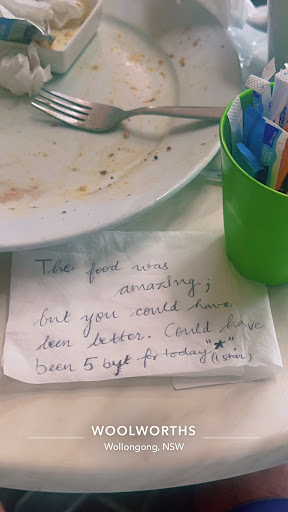 The food was
amazing;
but you could have
been better. Could have
been 5 but for today "★"
(1 star)
WOOLWORTHS
Wollongong, NSW